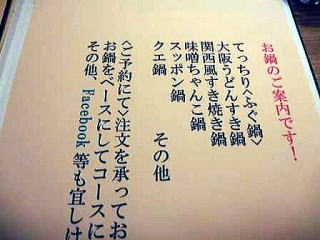 お鍋のご案内です!
てっちり〈ふぐ鍋〉
大阪うどんすき鍋
関西風すき焼き鍋
味噌ちゃんこ鍋
スッポン鍋
クエ鍋 その他
〈ご予約にて〉注文を承ってお
お鍋をベースにしてコースに
その他、Facebook 等も宜しけ